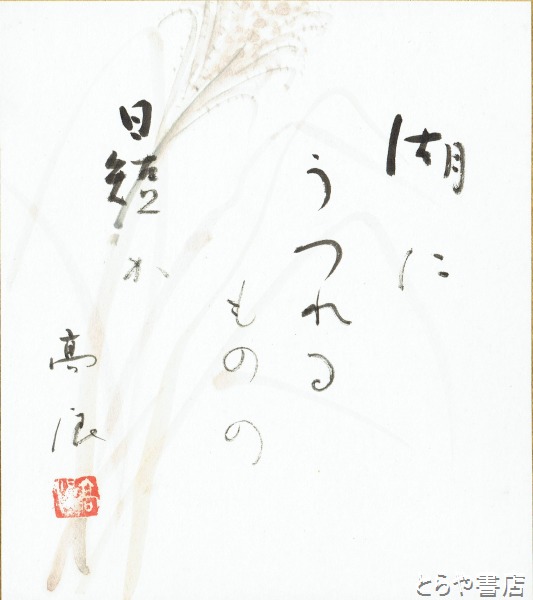 湖に
うつれる
ものの
日短か
高浪
とらや書店